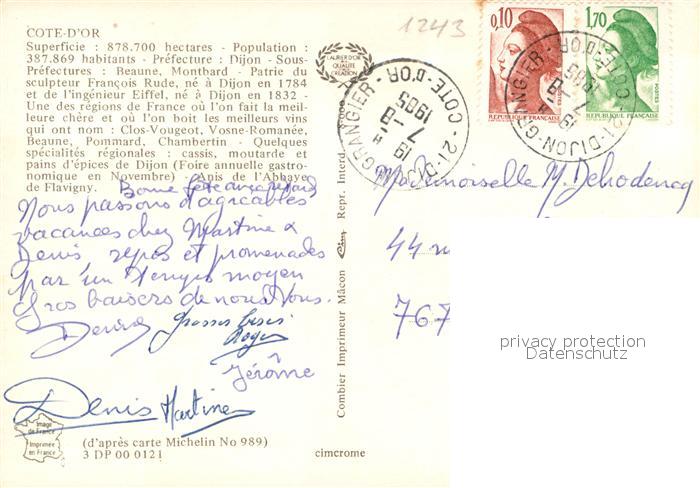 COTE-D'OR
Superficie : 878.700 hectares - Population :
387.869 habitants - Préfecture : Dijon - Sous-
Préfectures : Beaune, Montbard - Patrie du
sculpteur François Rude, né à Dijon en 1784
et de l'ingénieur Eiffel, né à Dijon en 1832 -
Une des régions de France où l'on fait la meil-
leure chère et où l'on boit les meilleurs vins
qui ont nom : Clos-Vougeot, Vosne-Romanée,
Beaune, Pommard, Chambertin - Quelques
spécialités régionales : cassis, moutarde et
pains d'épices de Dijon (Foire annuelle gastro-
nomique en Novembre) - Anis de l'Abbaye
de Flavigny.
Bonne fête avec retard
Nous passons d'agréables
vacances chez Martine &
Denis, repos et promenades
par un temps moyen
Gros baisers de nous tous.
Denise
Grosses bises
Roger
Jérôme
Denis
Martine
Image
de France
Imprimée
en France
(d'après carte Michelin No 989)
3 DP 00 0121
cimcrome
Combier Imprimeur Mâcon
Cim
Repr. Interd.
LAURIER D'OR
DE LA
QUALITÉ
CRÉATION
1243
21-DIJON-GRANGIER
COTE-D'OR
19 H
7 -8
1985
0,10
REPUBLIQUE FRANÇAISE
1,70
POSTES
REPUBLIQUE FRANÇAISE
21-DIJON-GRANGIER
COTE-D'OR
19 H
7 -8
1985
Mademoiselle M. Dehodencq
44
767
privacy protection
Datenschutz